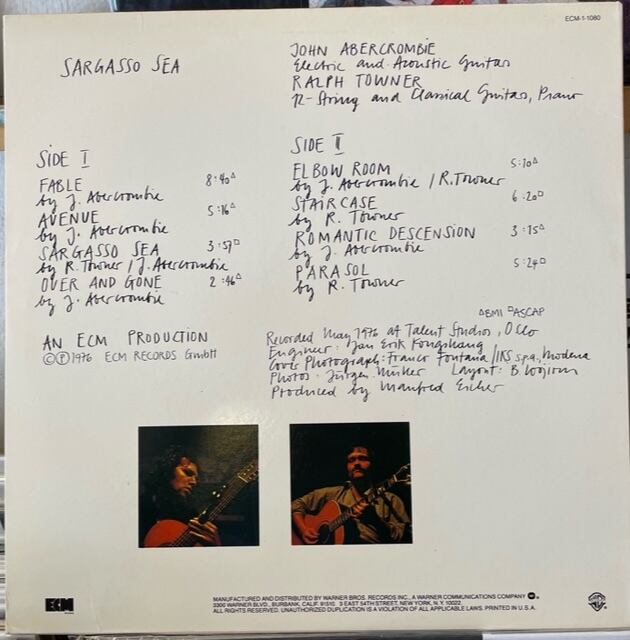 ECM-1-1080
SARGASSO SEA
JOHN ABERCROMBIE
Electric and Acoustic Guitars
RALPH TOWNER
12-String and Classical Guitars, Piano
SIDE I
FABLE 8:40△
by J. Abercrombie
AVENUE 5:16△
by J. Abercrombie
SARGASSO SEA 3:57□
by R. Towner / J. Abercrombie
OVER AND GONE 2:46△
by J. Abercrombie
SIDE II
ELBOW ROOM 5:10△
by J. Abercrombie / R. Towner
STAIRCASE 6:20□
by R. Towner
ROMANTIC DESCENSION 3:15△
by J. Abercrombie
PARASOL 5:24□
by R. Towner
△BMI □ASCAP
AN ECM PRODUCTION
©℗1976 ECM RECORDS GmbH
Recorded May 1976 at Talent Studios, Oslo
Engineer: Jan Erik Kongshaug
Cover Photograph: Franco Fontana / IKS s.p.a., Modena
Photos: Jürgen Layout: B. Wojirsch
Produced by Manfred Eicher
ECM
MANUFACTURED AND DISTRIBUTED BY WARNER BROS. RECORDS INC., A WARNER COMMUNICATIONS COMPANY
3300 WARNER BLVD., BURBANK, CALIF. 91510 3 EAST 54TH STREET, NEW YORK, N.Y. 10022
ALL RIGHTS RESERVED. UNAUTHORIZED DUPLICATION IS A VIOLATION OF ALL APPLICABLE LAWS. PRINTED IN U.S.A.